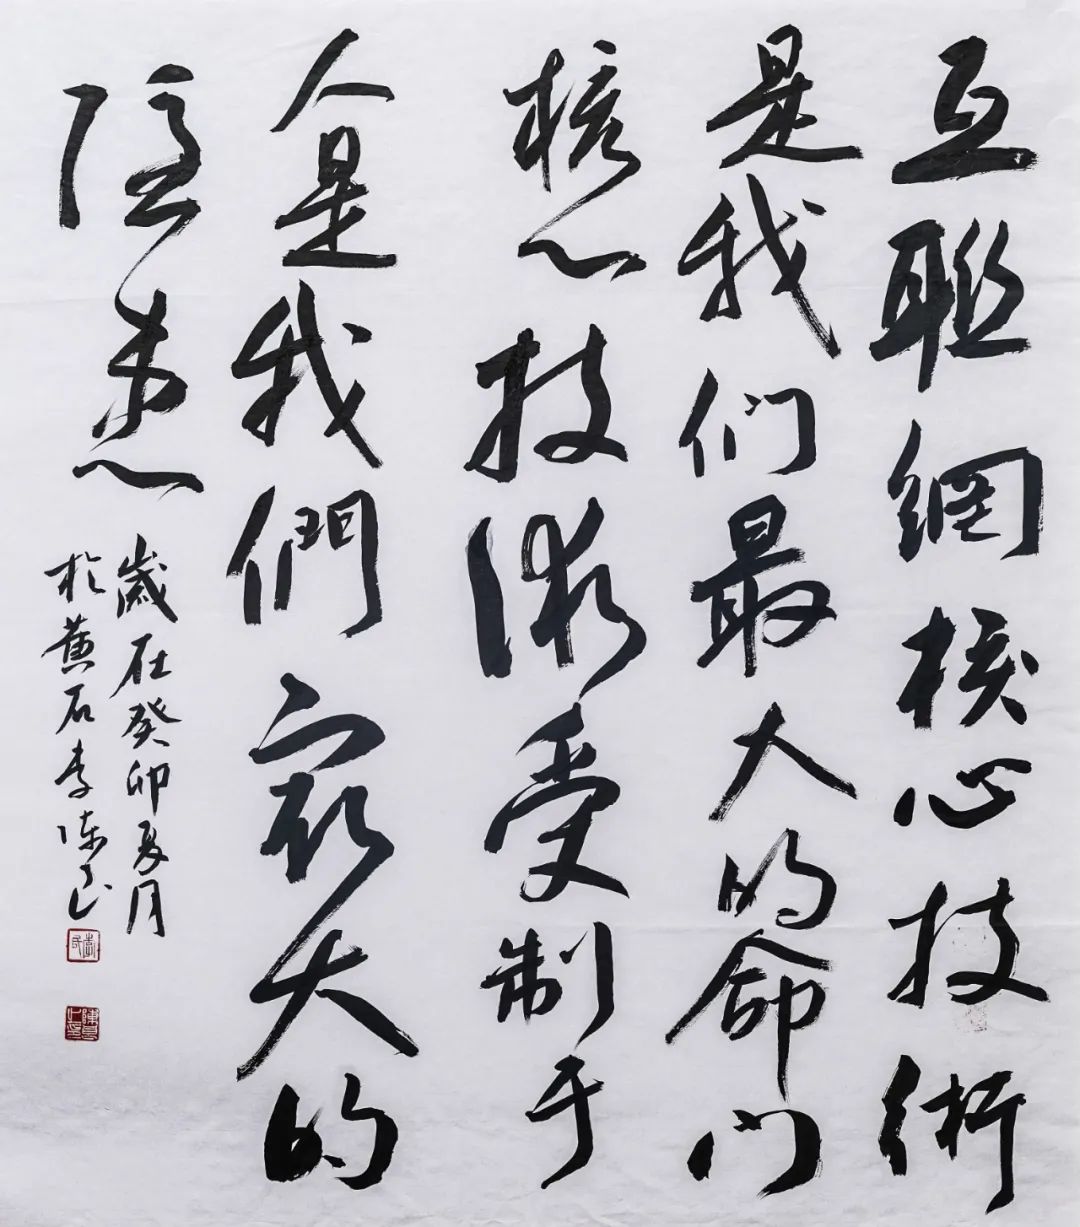 互聯網核心技術
是我们最大的命门
核心技術受制于
人是我們最大的
隐患
歲在癸卯夏月
於黄石李陈